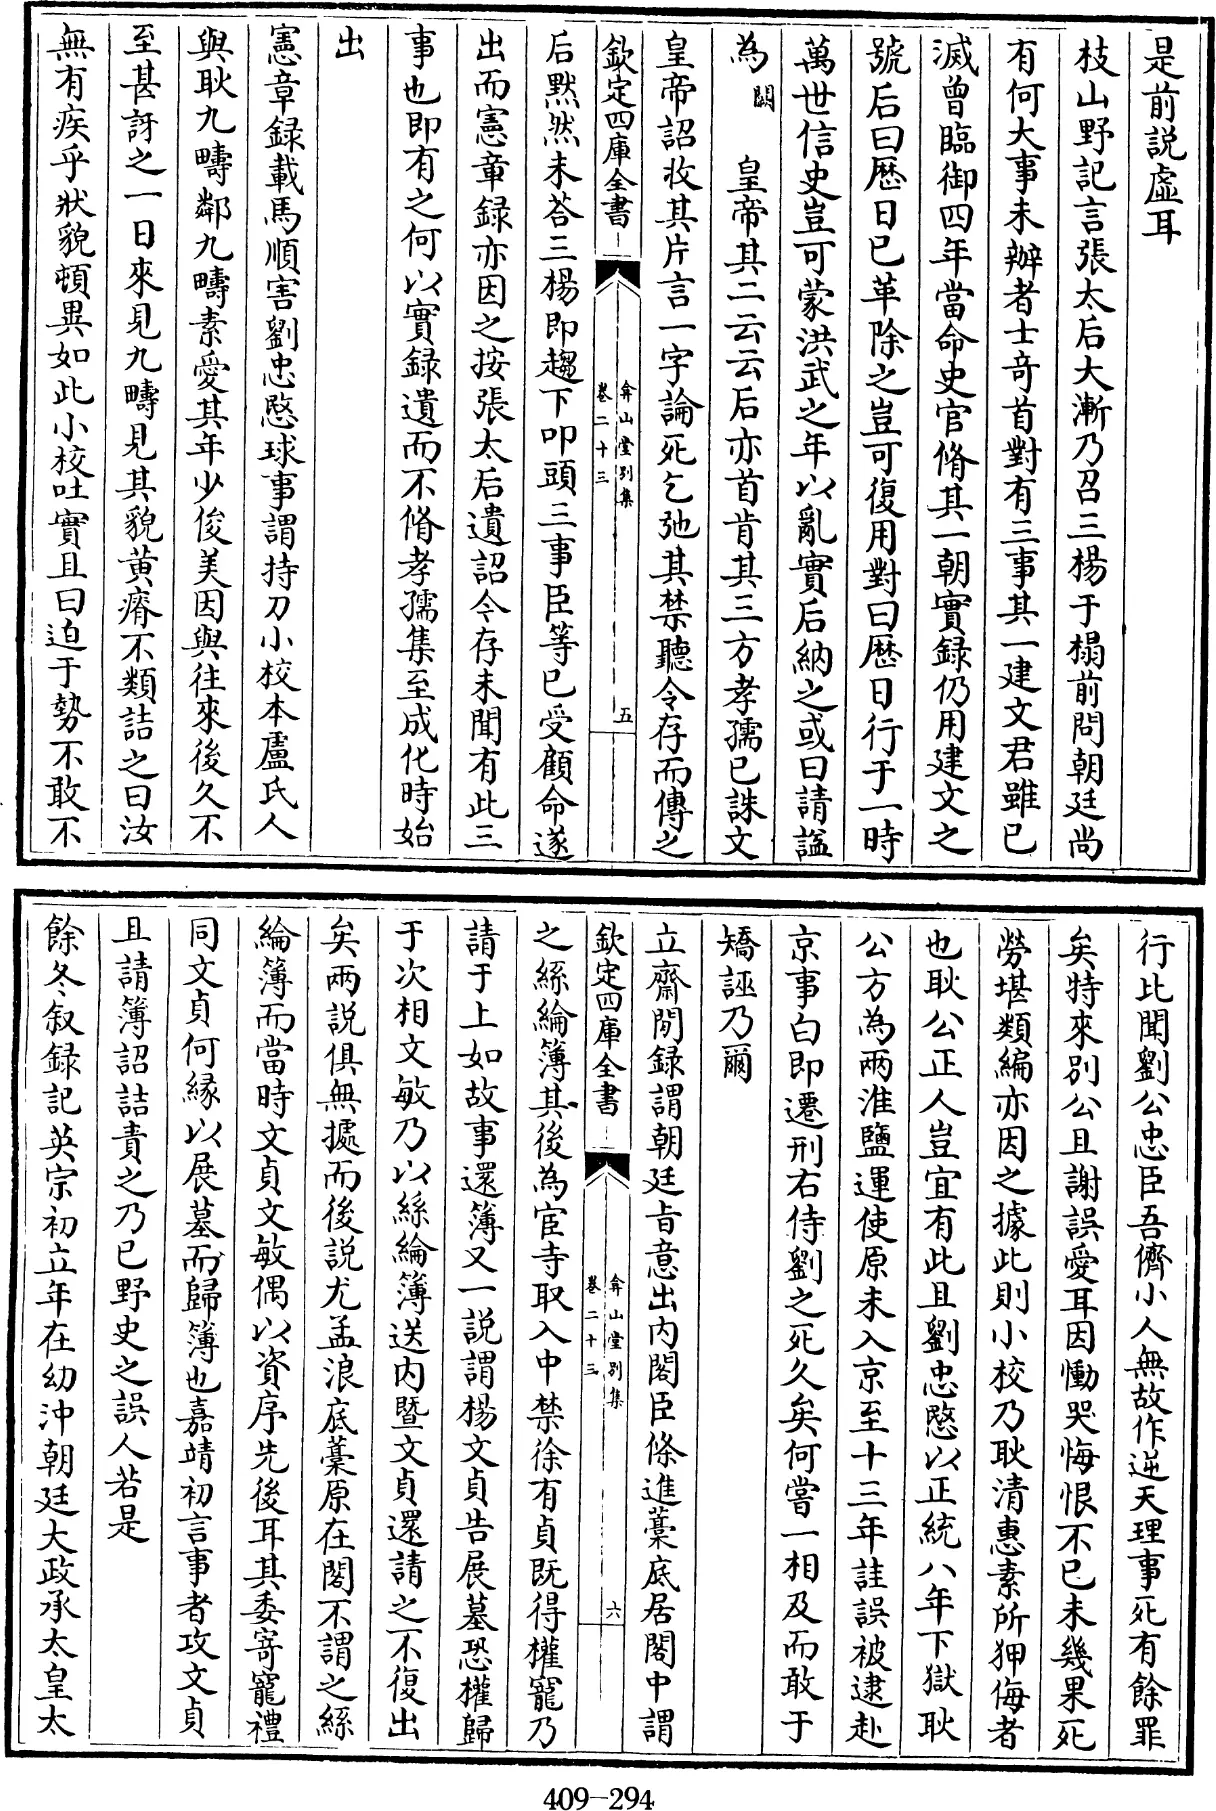 是前説虚耳
枝山野記言張太后大漸乃召三楊于榻前問朝廷尚
有何大事未辦者士奇首對有三事其一建文君雖已
滅曾臨御四年當命史官脩其一朝實録仍用建文之
號后曰歴日已革除之豈可復用對曰歴日行于一時
萬世信史豈可蒙洪武之年以亂實后納之或曰請謚
為闕皇帝其二云云后亦首肯其三方孝孺已誅文
皇帝詔收其片言一字論死乞弛其禁聽令存而傳之
欽定四庫全書
弇山堂别集
卷二十三
五
后黙然未荅三楊即趨下叩頭三事臣等已受顧命遂
出而憲章録亦因之按張太后遺詔今存未聞有此三
事也即有之何以實録遺而不脩孝孺集至成化時始
出
憲章録載馬順害劉忠愍球事謂持刀小校本盧氏人
與耿九疇鄰九疇素愛其年少俊美因與往來後久不
至甚訝之一日來見九疇見其貌黄瘠不類詰之曰汝
無有疾乎狀貌頓異如此小校吐實且曰迫于勢不敢不
行比聞劉公忠臣吾儕小人無故作逆天理事死有餘罪
矣特來别公且謝誤愛耳因慟哭悔恨不已未幾果死
勞堪類編亦因之據此則小校乃耿清惠素所狎侮者
也耿公正人豈宜有此且劉忠愍以正統八年下獄耿
公方為兩淮鹽運使原未入京至十三年詿誤被逮赴
京事白即遷刑右侍劉之死久矣何嘗一相及而敢于
矯誣乃爾
立齋閒録謂朝廷旨意出内閣臣條進藁底居閣中謂
欽定四庫全書
弇山堂别集
卷二十三
六
之絲綸簿其後為宦寺取入中禁徐有貞既得權寵乃
請于上如故事還簿又一説謂楊文貞告展墓恐權歸
于次相文敏乃以絲綸簿送内暨文貞還請之不復出
矣兩説俱無據而後説尤孟浪底藁原在閣不謂之絲
綸簿而當時文貞文敏偶以資序先後耳其委寄寵禮
同文貞何縁以展墓而歸簿也嘉靖初言事者攻文貞
且請簿詔詰責之乃已野史之誤人若是
餘冬叙録記英宗初立年在幼沖朝廷大政承太皇太
409-294